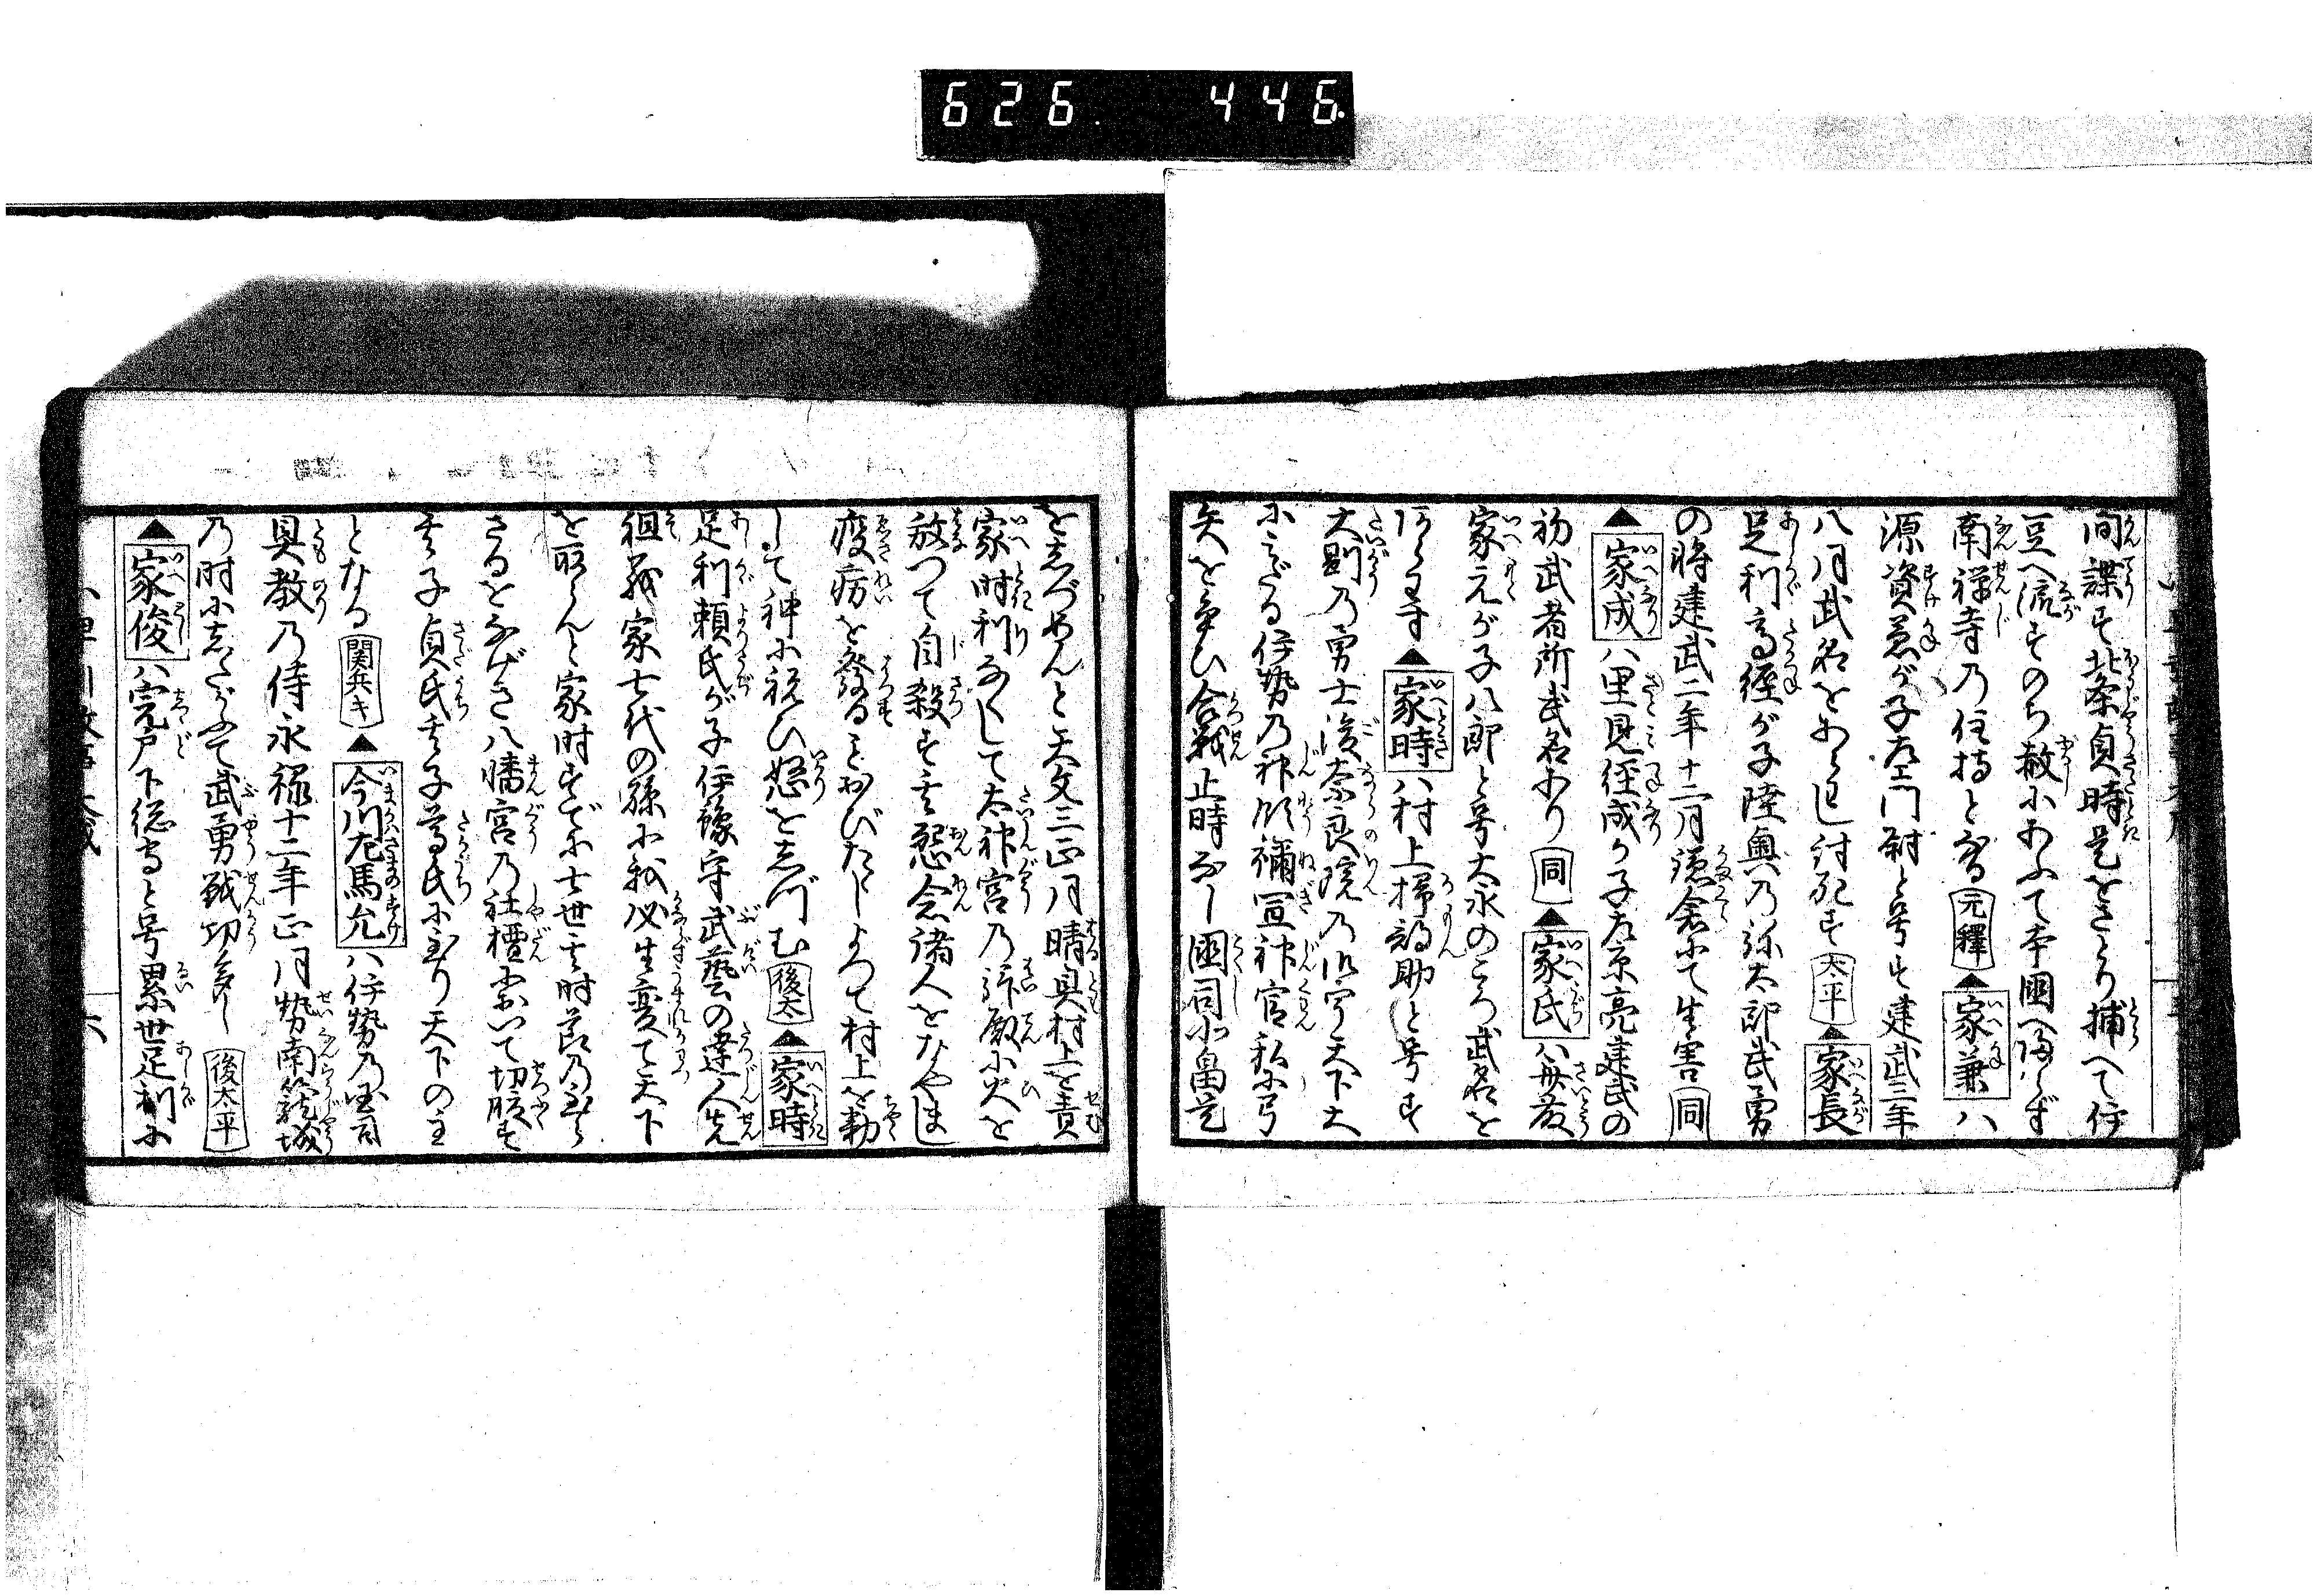 626. 446.
間諜す北条貞時是をさとり捕へて伊
豆へ流すそのち赦にあふて本国へ帰らず
南禅寺乃住持となる 元釋 ▲家兼ハ
源資兼が子左エ門尉と号す建武三年
八月武名をあらはし討死す 太平 ▲家長
足利高経が子陸奥乃弥太郎武勇
の時建武二年十二月鎌倉にて生害 同
▲家成ハ里見経成が子左京亮建武の
初武者所武名あり 同 ▲家氏ハ斉藤
家元が子八郎と号大永のころ武名を
▲家時ハ村上掃部助と号す
大剛乃勇士後奈良院乃御宇天下大
にみだる伊勢乃神領禰宜神官私に弓
矢を争ひ合戦止時なし国司北畠是
をしづめんと天文三正月晴具村上を責
家時利なくして太神宮乃拝殿に火を
放つて自殺す其怨念諸人をなやまし
疫癘を發る事おびたゝしよつて村上を勅
して神に祝ひ怒をしづむ 後太 ▲家時
足利頼氏が子伊豫守武藝の達人先
祖義家七代の孫に我必生変て天下
を取らんと家時すでに七世其时節乃到ら
さるをなげき八幡宮乃社檀において切腹す
其子貞氏其子尊氏に至り天下の主
となる 関兵キ ▲今川左馬允ハ伊勢乃国司
具教乃侍永禄十二年正月勢南籠城
乃时にしたがふて武勇戦功多し 後太平
▲家俊ハ宍戸下総守と号累世足利に